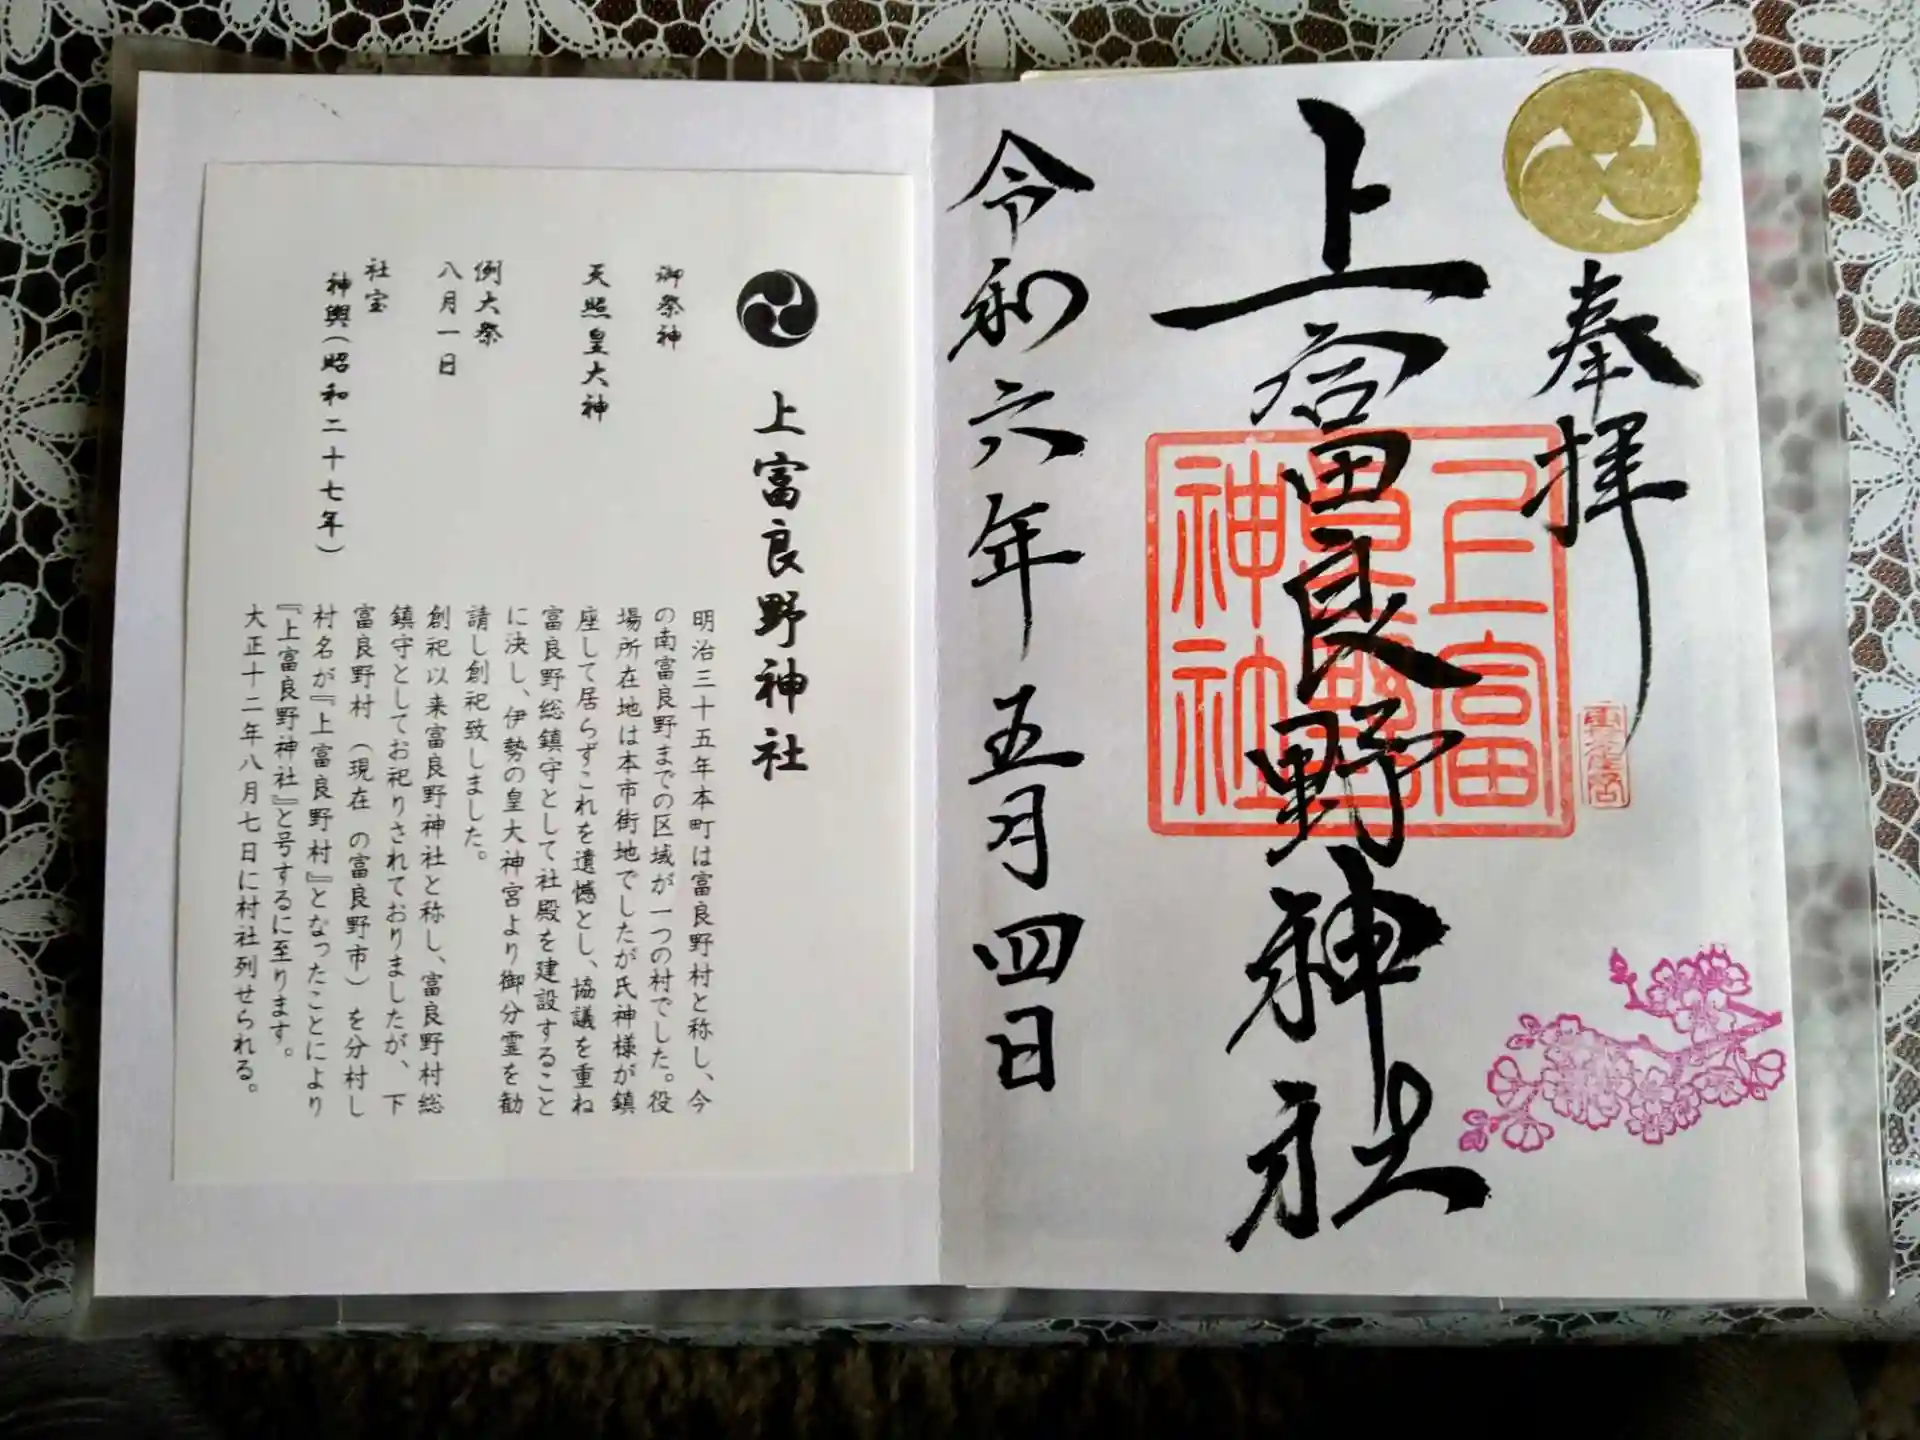 奉拝
上富良野神社
上富良野神社
令和六年五月四日
上富良野神社
御祭神
天照皇大神
例大祭
八月一日
社宝
神輿(昭和二十七年)
明治三十五年本町は富良野村と称し、今
の南富良野までの区域が一つの村でした。役
場所在地は本市街地でしたが氏神様が鎮
座して居らずこれを遺憾とし、協議を重ね
富良野総鎮守として社殿を建設すること
に決し、伊勢の皇大神宮より御分霊を勧
請し創祀致しました。
創祀以来富良野神社と称し、富良野村総
鎮守としてお祀りされておりましたが、下
富良野村(現在 の富良野市)を分村し
村名が『上富良野村』となったことにより
『上富良野神社』と号するに至ります。
大正十二年八月七日に村社列せられる。